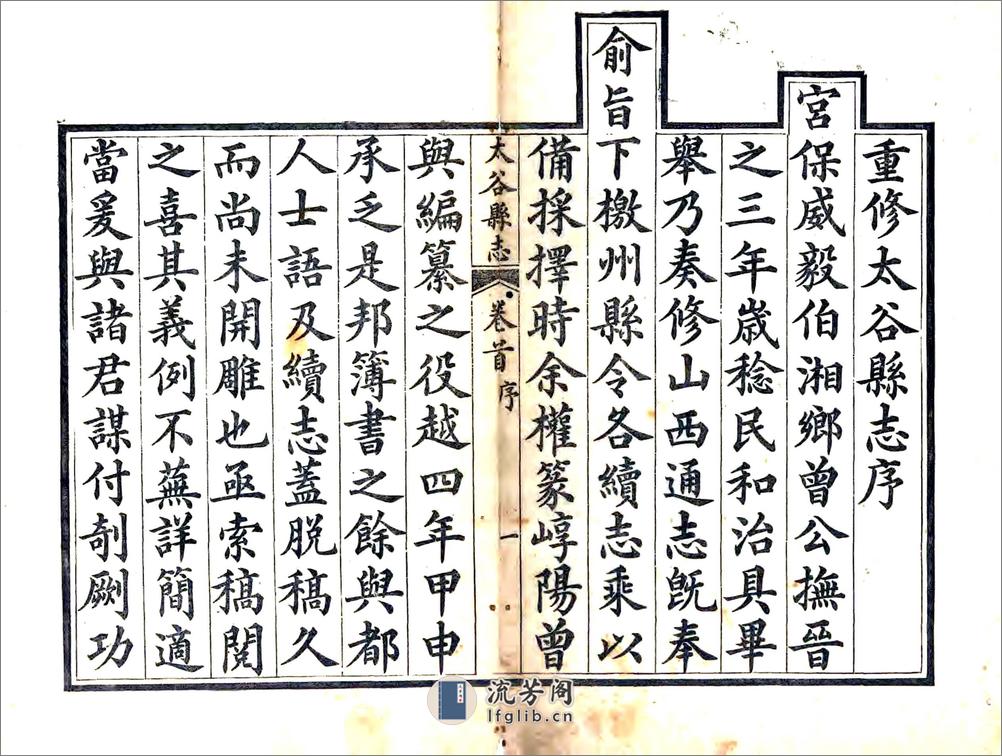 重修太谷縣志序
宮保威毅伯湘鄉曾公撫晉
之三年歲稔民和治具畢
舉乃奏修山西通志旣奉
俞旨下檄州縣令各續志乘以
備採擇時余權篆崞陽曾
太谷縣志 卷首 序 一
與編纂之役越四年甲申
承乏是邦簿書之餘與都
人士語及續志蓋脱稿久
而尚未開雕也亟索稿閱
之喜其義例不蕪詳簡適
當爰與諸君謀付剞劂功
流芳阁
lfglib.cn